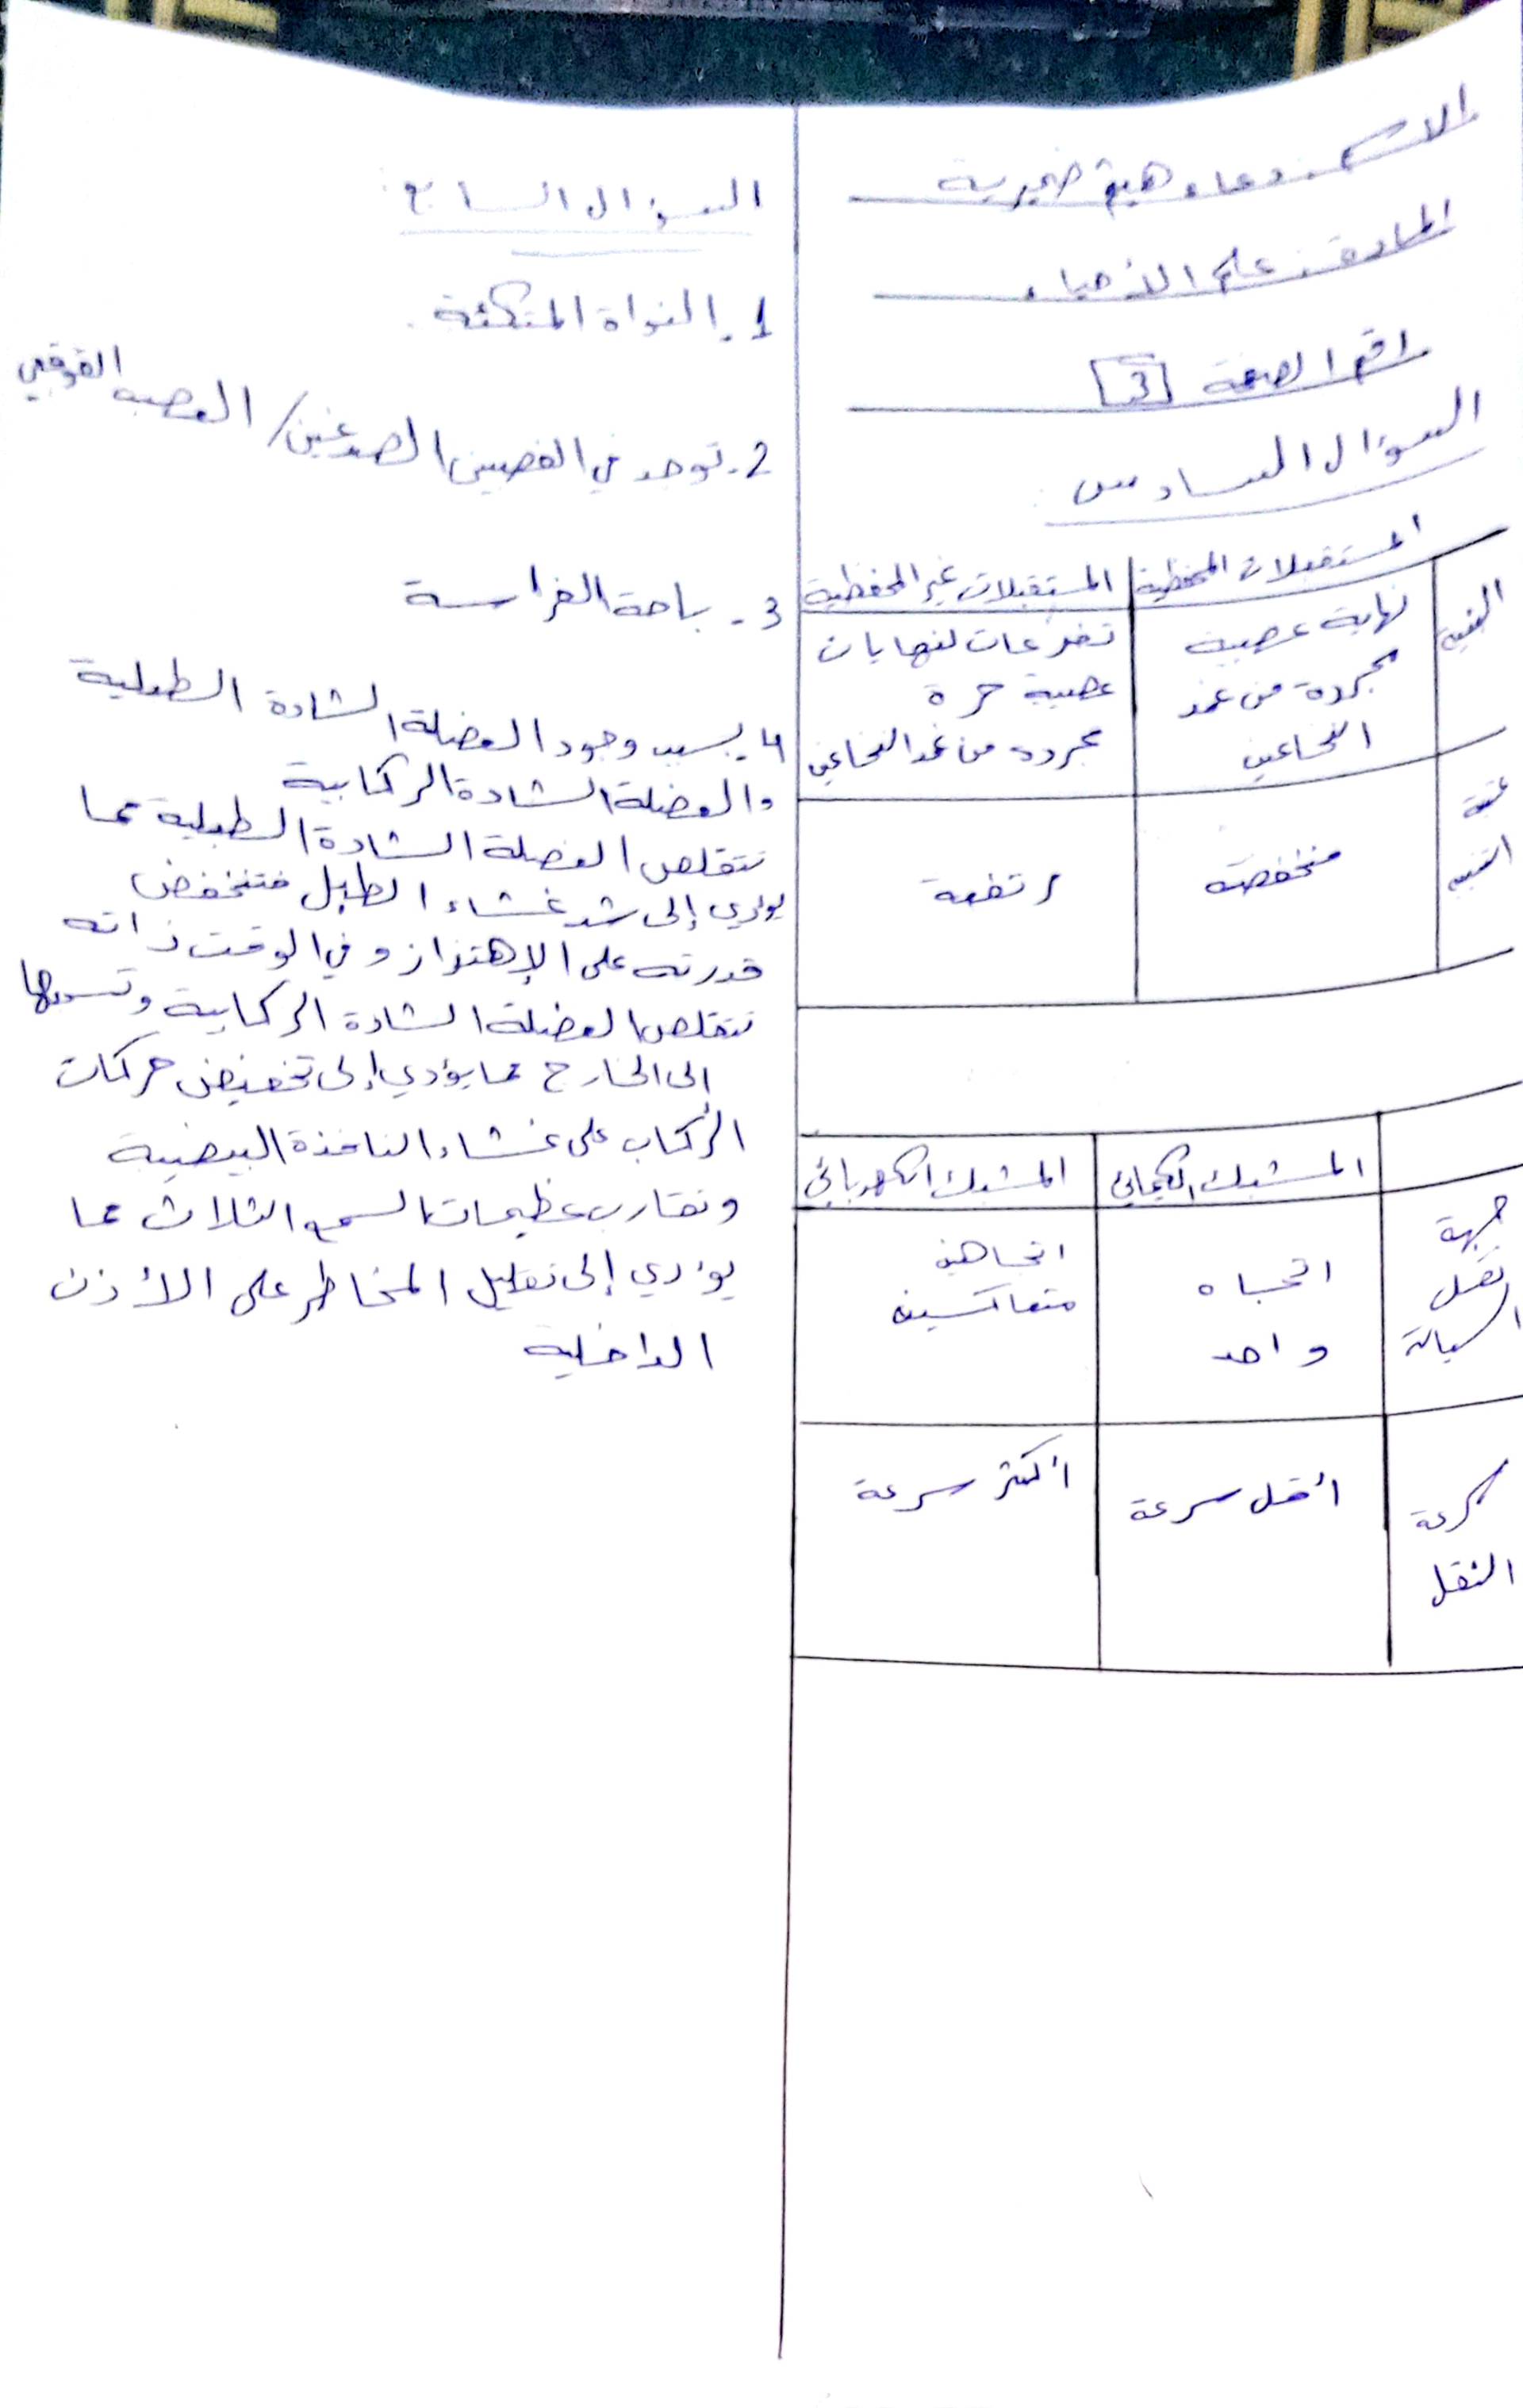 الاسم: دعاء هيثم
المادة: علم الأحياء
رقم الصفحة [3]
السؤال السادس
المستقبلات المحفظية المستقبلات غير المحفظية
البنية
نهاية عصبية
مجردة من غمد
النخاعين
تفرعات لنهايات
عصبية حرة
مجردة من غمد النخاعين
عتبة
التنبيه
منخفضة
مرتفعة
المشبك الكيميائي المشبك الكهربائي
جهة
نقل
السيالة
اتجاه
واحد
اتجاهين
متعاكسين
سرعة
النقل
أقل سرعة
أكثر سرعة
السؤال السابع:
1. النواة المتكئة.
2. توجد في الفصين الصدغين/ العصب القوقعي
3. باحة الفراسة
4. بسبب وجود العضلة الشادة الطبلية
والعضلة الشادة الركابية
تتقلص العضلة الشادة الطبلية مما
يؤدي إلى شد غشاء الطبل فتنخفض
قدرته على الإهتزاز وفي الوقت ذاته
تتقلص العضلة الشادة الركابية وتسحبها
الى الخارج مما يؤدي إلى تخفيض حركات
الركاب على غشاء النافذة البيضية
وتقارب عظيمات السمع الثلاث مما
يؤدي إلى تقليل المخاطر على الأذن
الداخلية